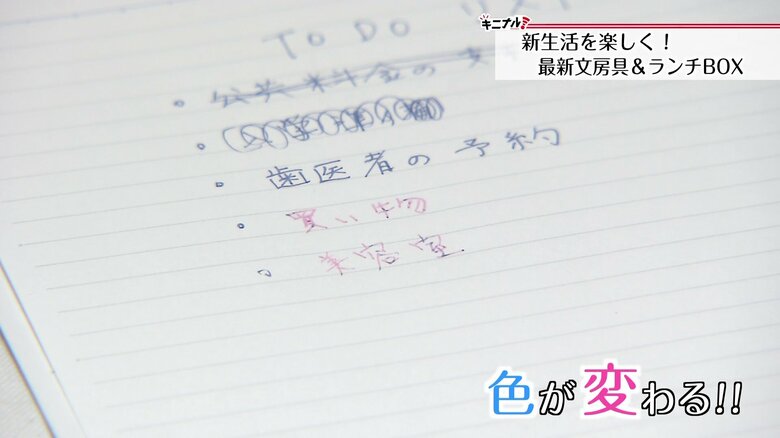 キニナル
新生活を楽しく!
最新文房具&ランチBOX
TO DO リスト
・公共料金の支
・歯医者の予約
・買い物
・美容室
色が変わる!!